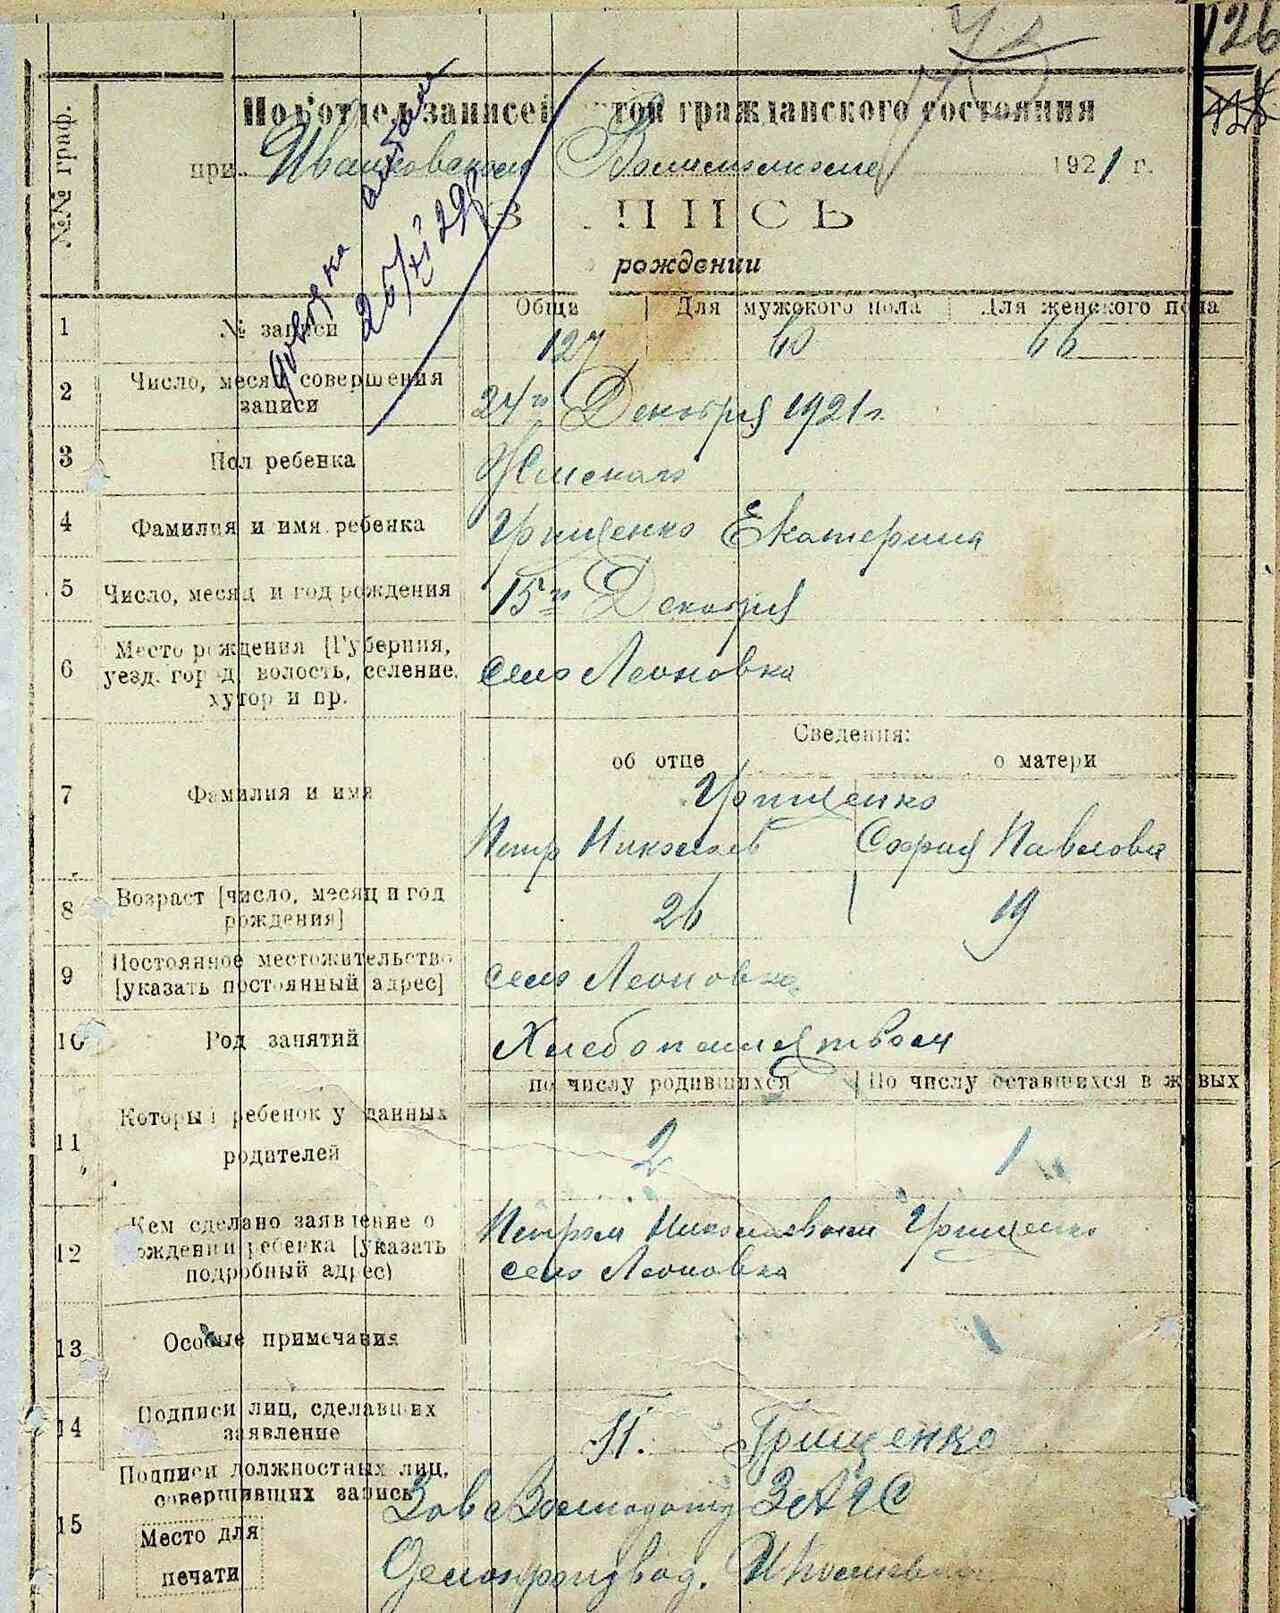 126
Подотдел записей актов гражданского состояния
при Ивановском Волисполкоме 1921 г.
№№ граф.
ЗАПИСЬ
рождении
25/XI 29
1 № записи
Общая Для мужского пола Для женского пола
127 60 66
2 Число, месяц совершения записи
24го Декабря 1921 г.
3 Пол ребенка
Женского
4 Фамилия и имя ребенка
Грищенко Екатерина
5 Число, месяц и год рождения
15го Декабря
6 Место рождения [Губерния,
уезд, город, волость, селение,
хутор и пр.
село Леоновка
Сведения:
об отце о матери
7 Фамилия и имя
Грищенко
Петр Николаев София Павлова
8 Возраст [число, месяц и год
рождения]
26 19
9 Постоянное местожительство
[указать постоянный адрес]
село Леоновка
10 Род занятий
Хлебопашеством
по числу родившихся По числу оставшихся в живых
11 Который ребенок у данных
родителей
2 1
12 Кем сделано заявление о
рождении ребенка [указать
подробный адрес)
Петром Николаевом Грищенко
село Леоновка
13 Особые примечания
14 Подписи лиц, сделавших
заявление
П. Грищенко
15 Подписи должностных лиц,
совершивших запись
Зав ЗАГС
Место для
печати
Делопроизвод.